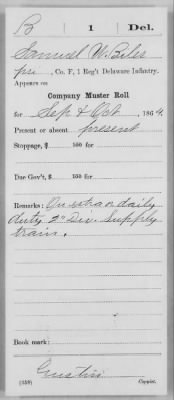 B | 1 | Del.
Samuel W. Biles
pri, Co. F, 1 Reg't Delaware Infantry.
Appears on
Company Muster Roll
for Sep & Oct, 1864.
Present or absent present
Stoppage, $ 100 for
Due Gov't, $ 100 for
Remarks: On extra or daily
duty 2" Div. Supply
train.
Book mark:
(358) Copyist.